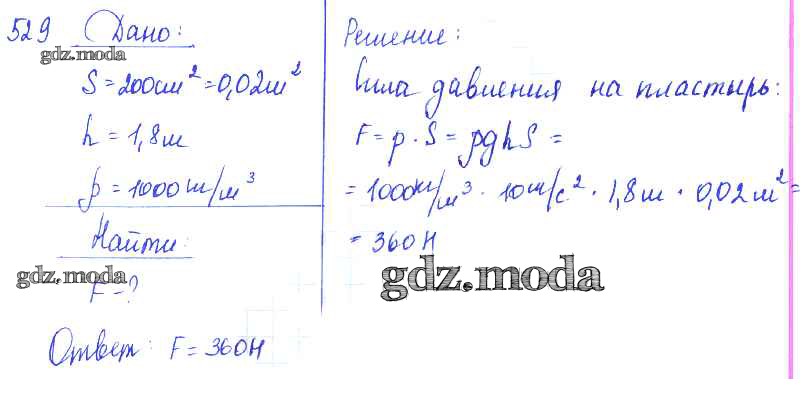 529 Дано:
gdz.moda
S = 200см² = 0,02м²
h = 1,8м
ρ = 1000кг/м³
Найти:
gdz.moda
F = ?
Ответ: F = 360Н
Решение:
Сила давления на пластырь:
F = p · S = ρghS =
= 1000кг/м³ · 10м/с² · 1,8м · 0,02м² =
= 360Н
gdz.moda